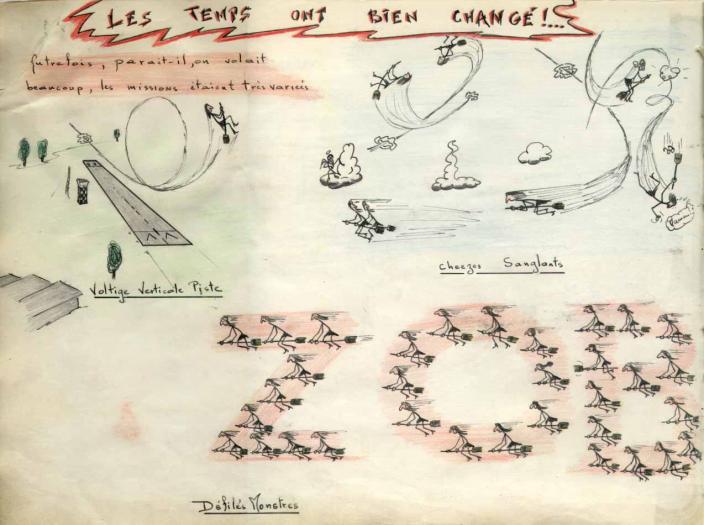 LES TEMPS ONT BIEN CHANGÉ!...
Autrefois, parait-il, on volait
beaucoup, les missions étaient très variées
Voltige Verticale Piste
cheezes Sanglants
ZOB
Défilés Monstres